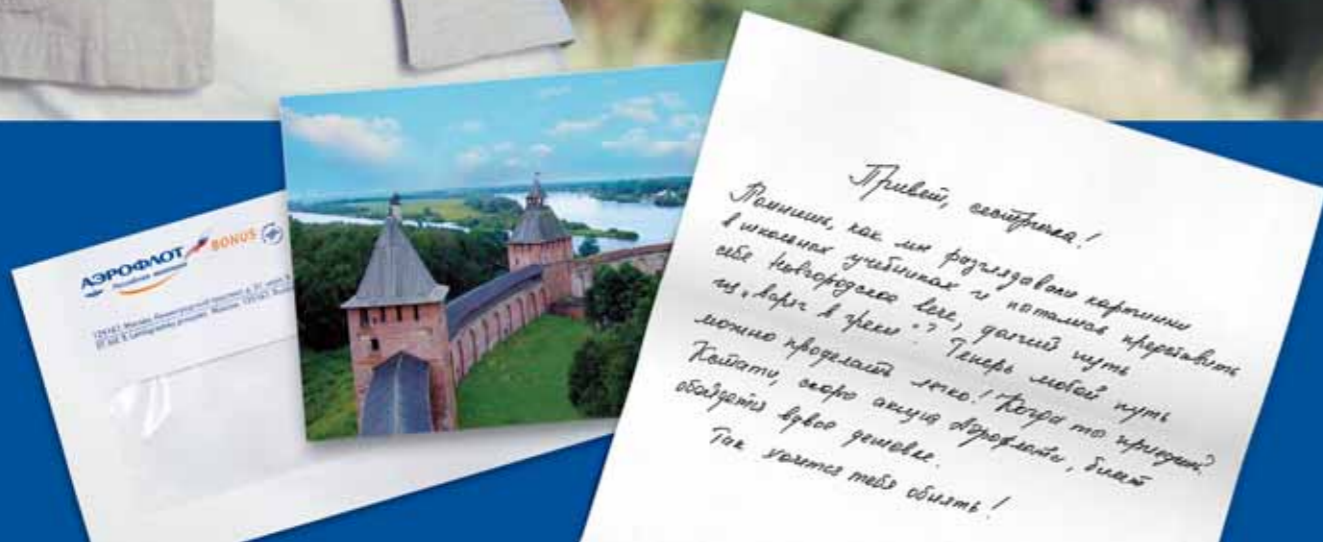 АЭРОФЛОТ
Российские авиалинии
BONUS
Привет, сестричка!
Помнишь, как мы разглядывали картинки
в школьных учебниках и пытались представить
себе Новгородское вече, долгий путь
из „варяг в греки“? Теперь любой путь
можно проделать легко! Когда ты приедешь?
Кстати, скоро акция Аэрофлота, билет
обойдется вдвое дешевле.
Так хочется тебя обнять!